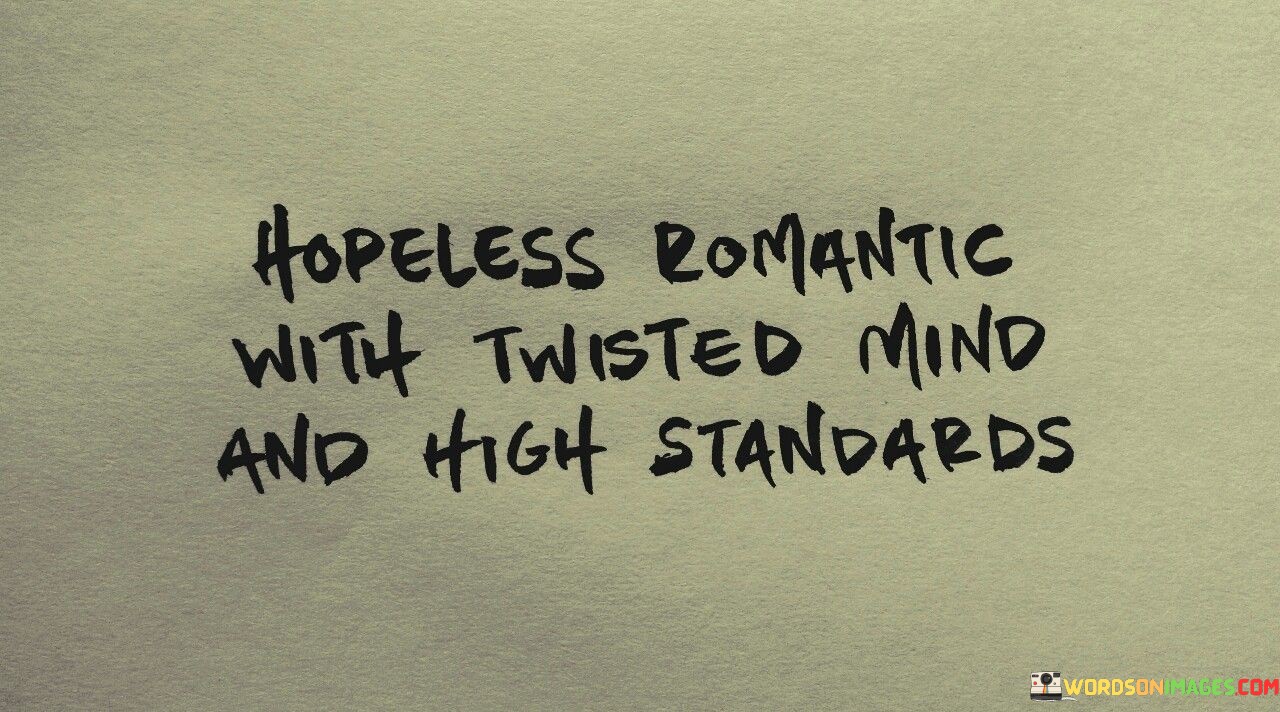 HOPELESS ROMANTIC
WITH TWISTED MIND
AND HIGH STANDARDS
WORDSONIMAGES.COM